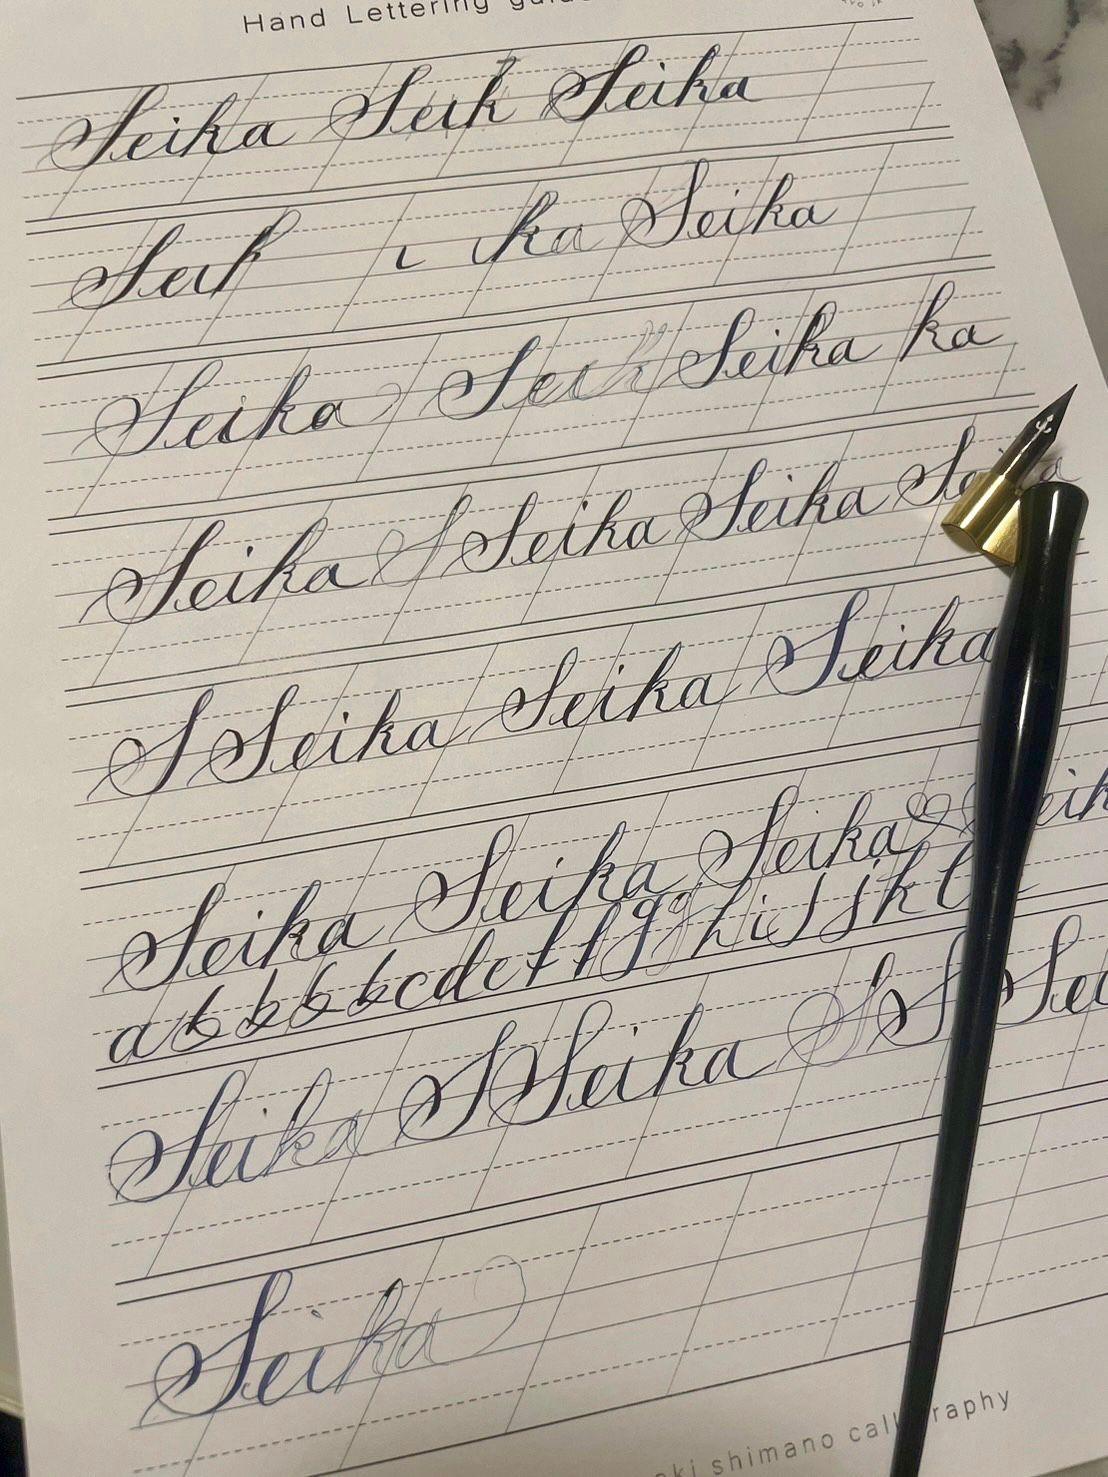 Hand Lettering
Seika Seik Seika
Seik i ka Seika
Seika Seik Seika ka
Seika S Seika Seika
S Seika Seika Seika
Seika Seika Seika Seik
a b b b b c d e f f g g h i j j k l
Seika S Seika S S S Sei
Seika
shimano calligraphy